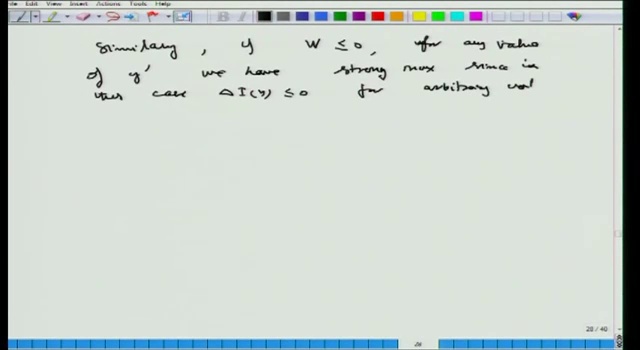 Edit View Insert Actions Tools Help
Similary, if W ≤ 0, for any value
of y' we have strong max since in
this case ΔI(y) ≤ 0 for arbitrary
28 / 40